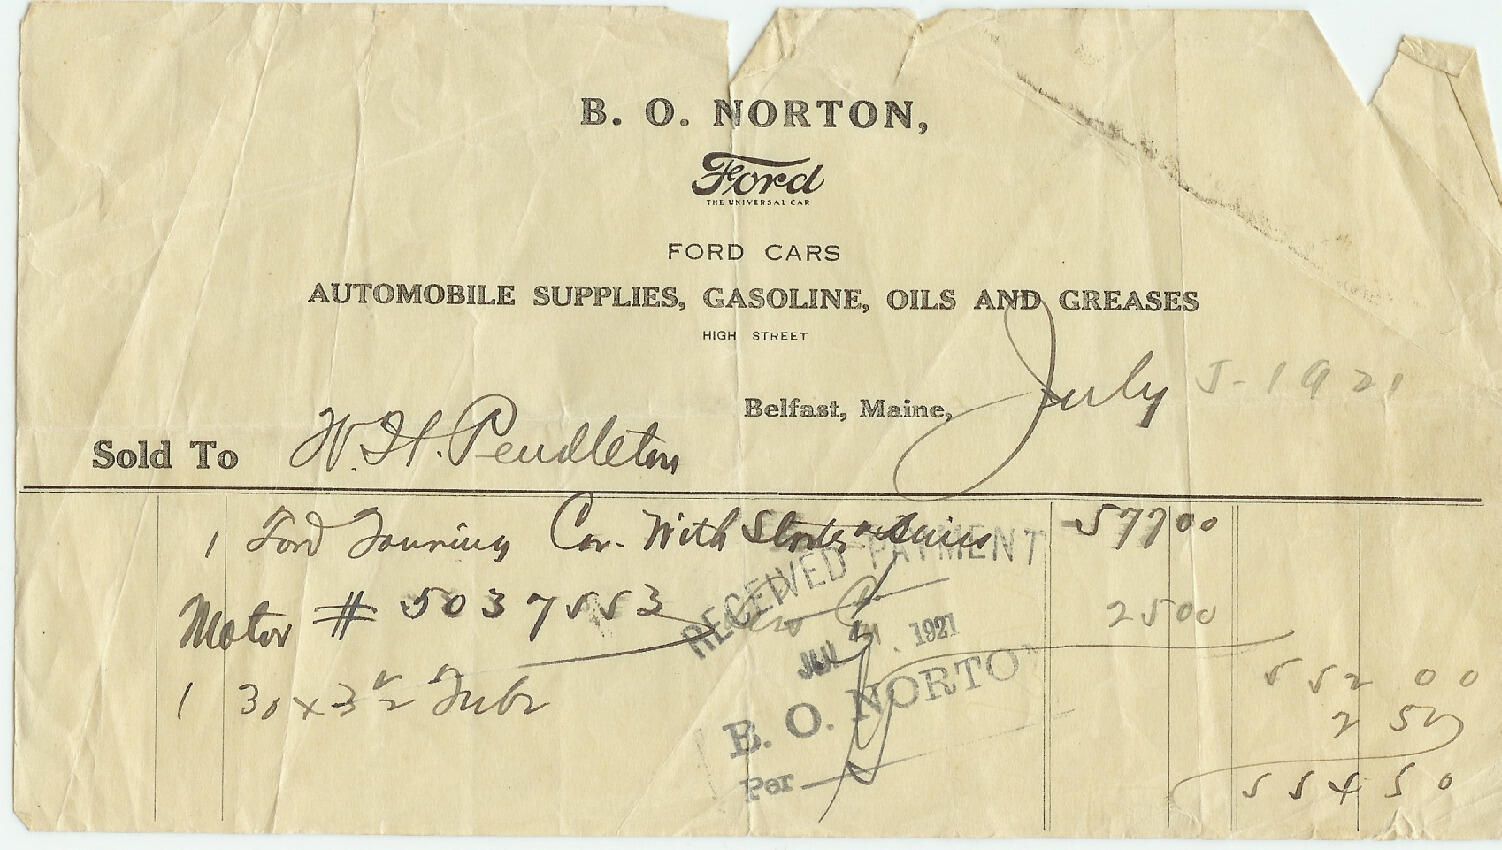 B. O. NORTON,
Ford
THE UNIVERSAL CAR
FORD CARS
AUTOMOBILE SUPPLIES, GASOLINE, OILS AND GREASES
HIGH STREET
Belfast, Maine, July 5-1921
Sold To W. H. Pendleton
1 Ford Touring Car. With Starter 577 00
Motor # 5037553 25 00
552 00
1 30 x 3 1/2 Tube 2 50
554 50
RECEIVED PAYMENT
1921
B. O. NORTON
Per